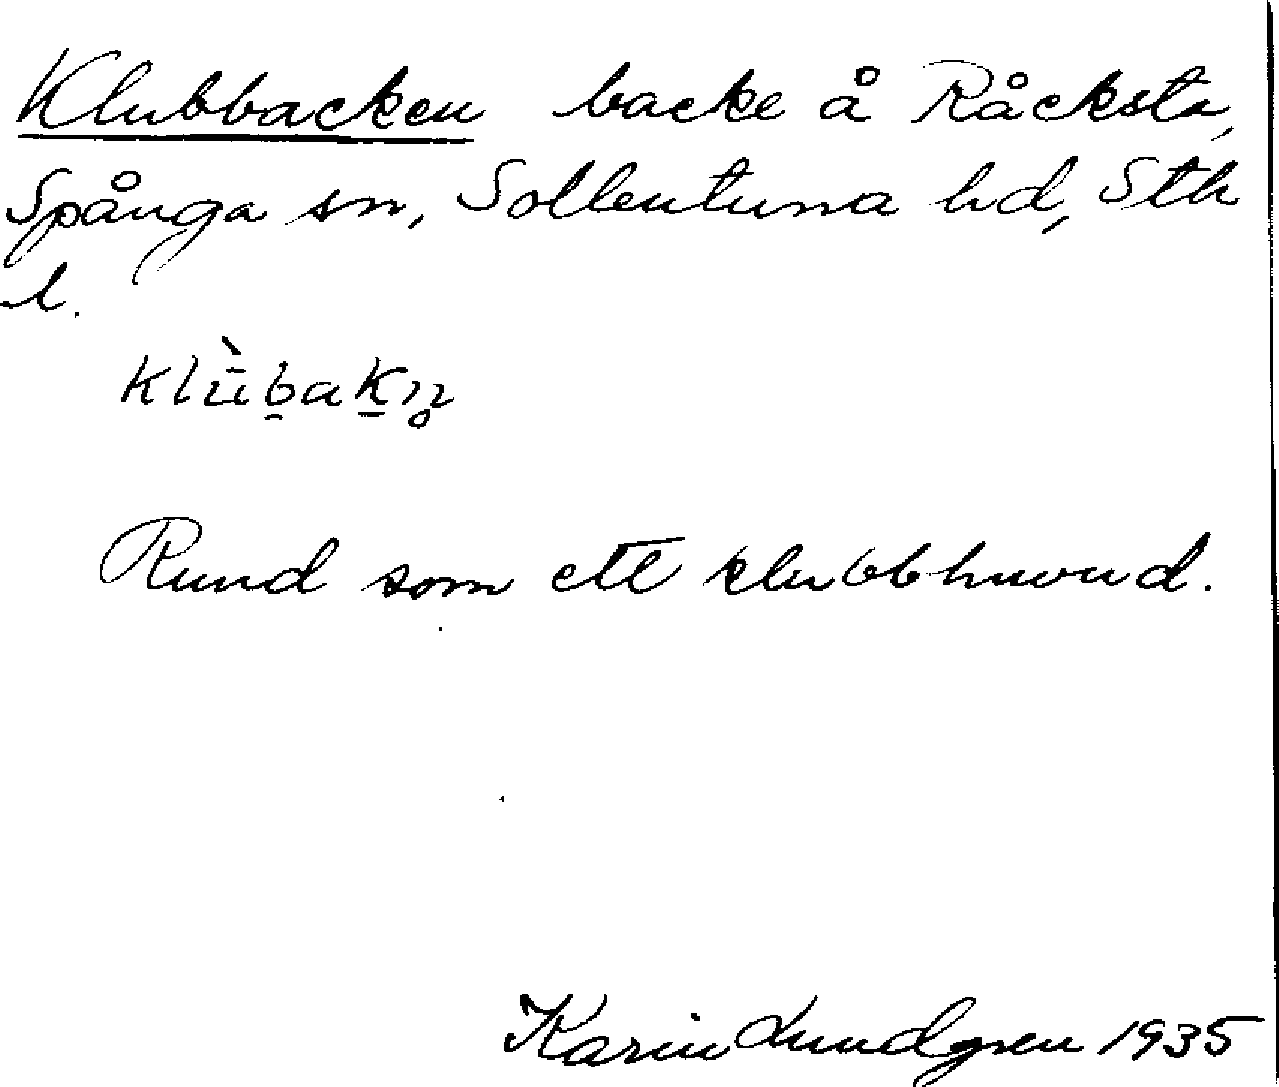 Klubbacken backe å Råcksta,
Spånga sn, Sollentuna hd, Sth
l.
klù̄b̠ak̠n̥
Rund som ett klubbhuvud.
Karin Lundgren 1935